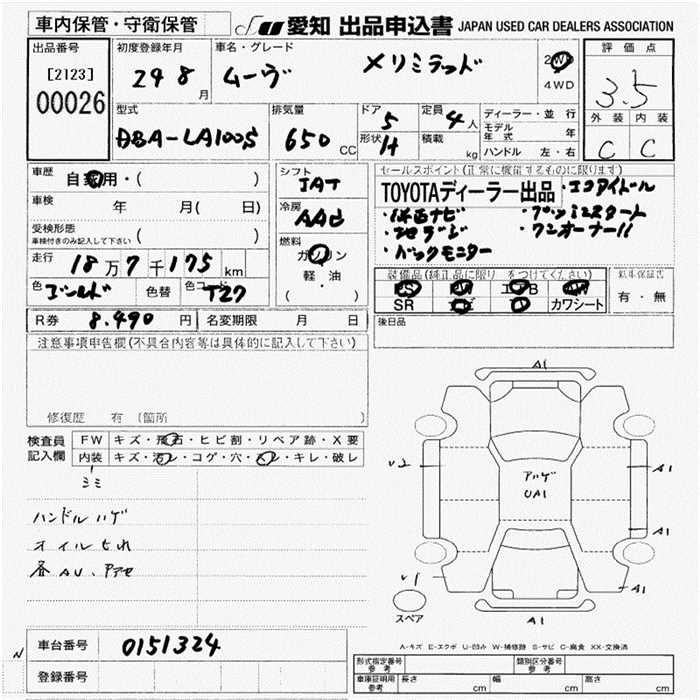 車内保管・守衛保管
JU 愛知 出品申込書 JAPAN USED CAR DEALERS ASSOCIATION
出品番号 初度登録年月 車名・グレード 評価点
[2123] 24 8月 ムーヴ 2WD 4WD 3.5
00026 型式 排気量 ドア 定員 ディーラー・並行 外装 内装
DBA-LA100S 650 CC 5 4人 モデル年式 年 C C
形状 H 積載 kg ハンドル 左・右
車歴 自家用・( ) シフト IAT セールスポイント(正常に機能するものに限ります)
車検 年 月( 日) 冷房 AAC TOYOTAディーラー出品 ・エコアイドル
受検形態 ( ) ・プッシュスタート
車検付きのみ記入して下さい 燃料 ・地デジ ・ワンオーナー!!
走行 18万7千175km ガソリン ・バックモニター
色 ゴールド 色替 色コード T27 軽・油 ( )
装備品(純正品に限り○をつけてください) 新車保証書
PS PW エアB AW 有・無
SR ナビ カワシート
R券 8.490円 名変期限 月 日 後日品
注意事項申告欄(不具合内容等は具体的に記入して下さい)
修復歴 有 (箇所
検査員記入欄 FW キズ・飛石・ヒビ割・リペア跡・X要
内装 キズ・汚レ・コゲ・穴・スレ・キレ・破レ
ハンドルハゲ
A1
V2 A1
UA1
A1
V1 A1
スペア A1
A-キズ E-エクボ U-凹み W-補修跡 S-サビ C-腐食 XX-交換済
車台番号 0151324
登録番号
形式指定番号 参考 類別区分番号 参考
車庫証明用 参考 長さ cm 幅 cm 高さ cm